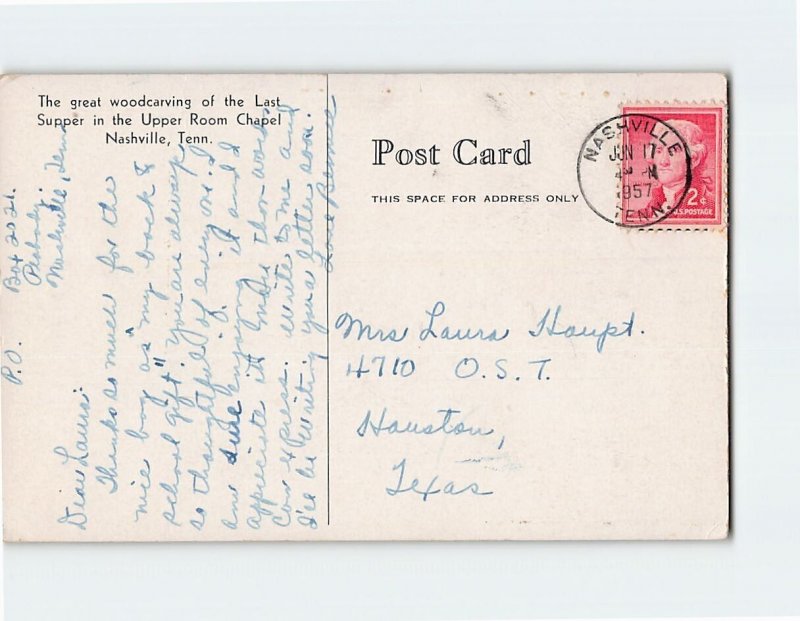 The great woodcarving of the Last
Supper in the Upper Room Chapel
Nashville, Tenn.
Post Card
THIS SPACE FOR ADDRESS ONLY
NASHVILLE
JUN 17
PM
1957
TENN.
2¢
U.S. POSTAGE
Mrs Laura Haupt.
4710 O.S.T.
Houston,
Texas
P.O. Box 2021.
Peabody.
Nashville, Tenn
Dear Laura:
Thanks so much for the
nice bag as "my back to
school gift". You are always
so thoughtful of everyone. I
am sure enjoying it and
appreciate it more than words
can express. Write to me and
I'll be writing you a letter soon.
Love